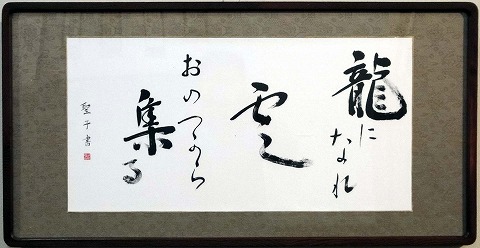 龍になれ
雲
おのづから
集る
聖子書